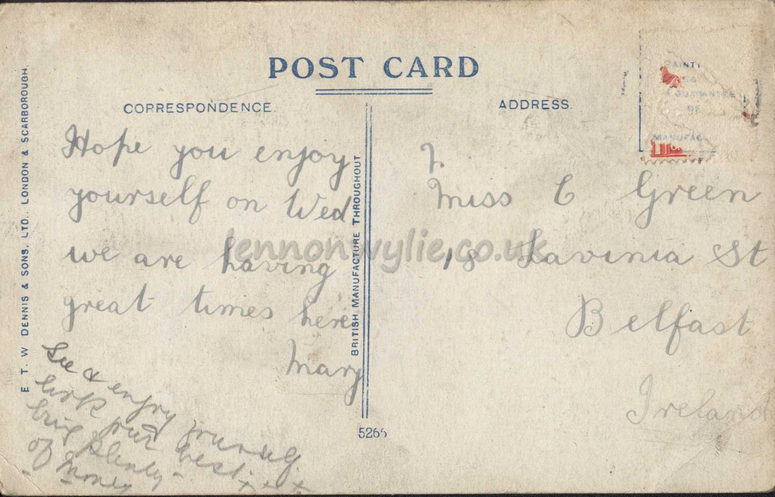 POST CARD
CORRESPONDENCE
ADDRESS
Hope you enjoy
yourself on Wed
we are having
great times here
Mary
See & enjoy yourself
look your best x x x
bring plenty
of money
Miss C Green
18 Lavinia St
Belfast
Ireland
E. T. W DENNIS & SONS, LTD. LONDON & SCARBOROUGH.
BRITISH MANUFACTURE THROUGHOUT
5266
GUARANTEE
OF
MANUFAC
lennonwylie.co.uk